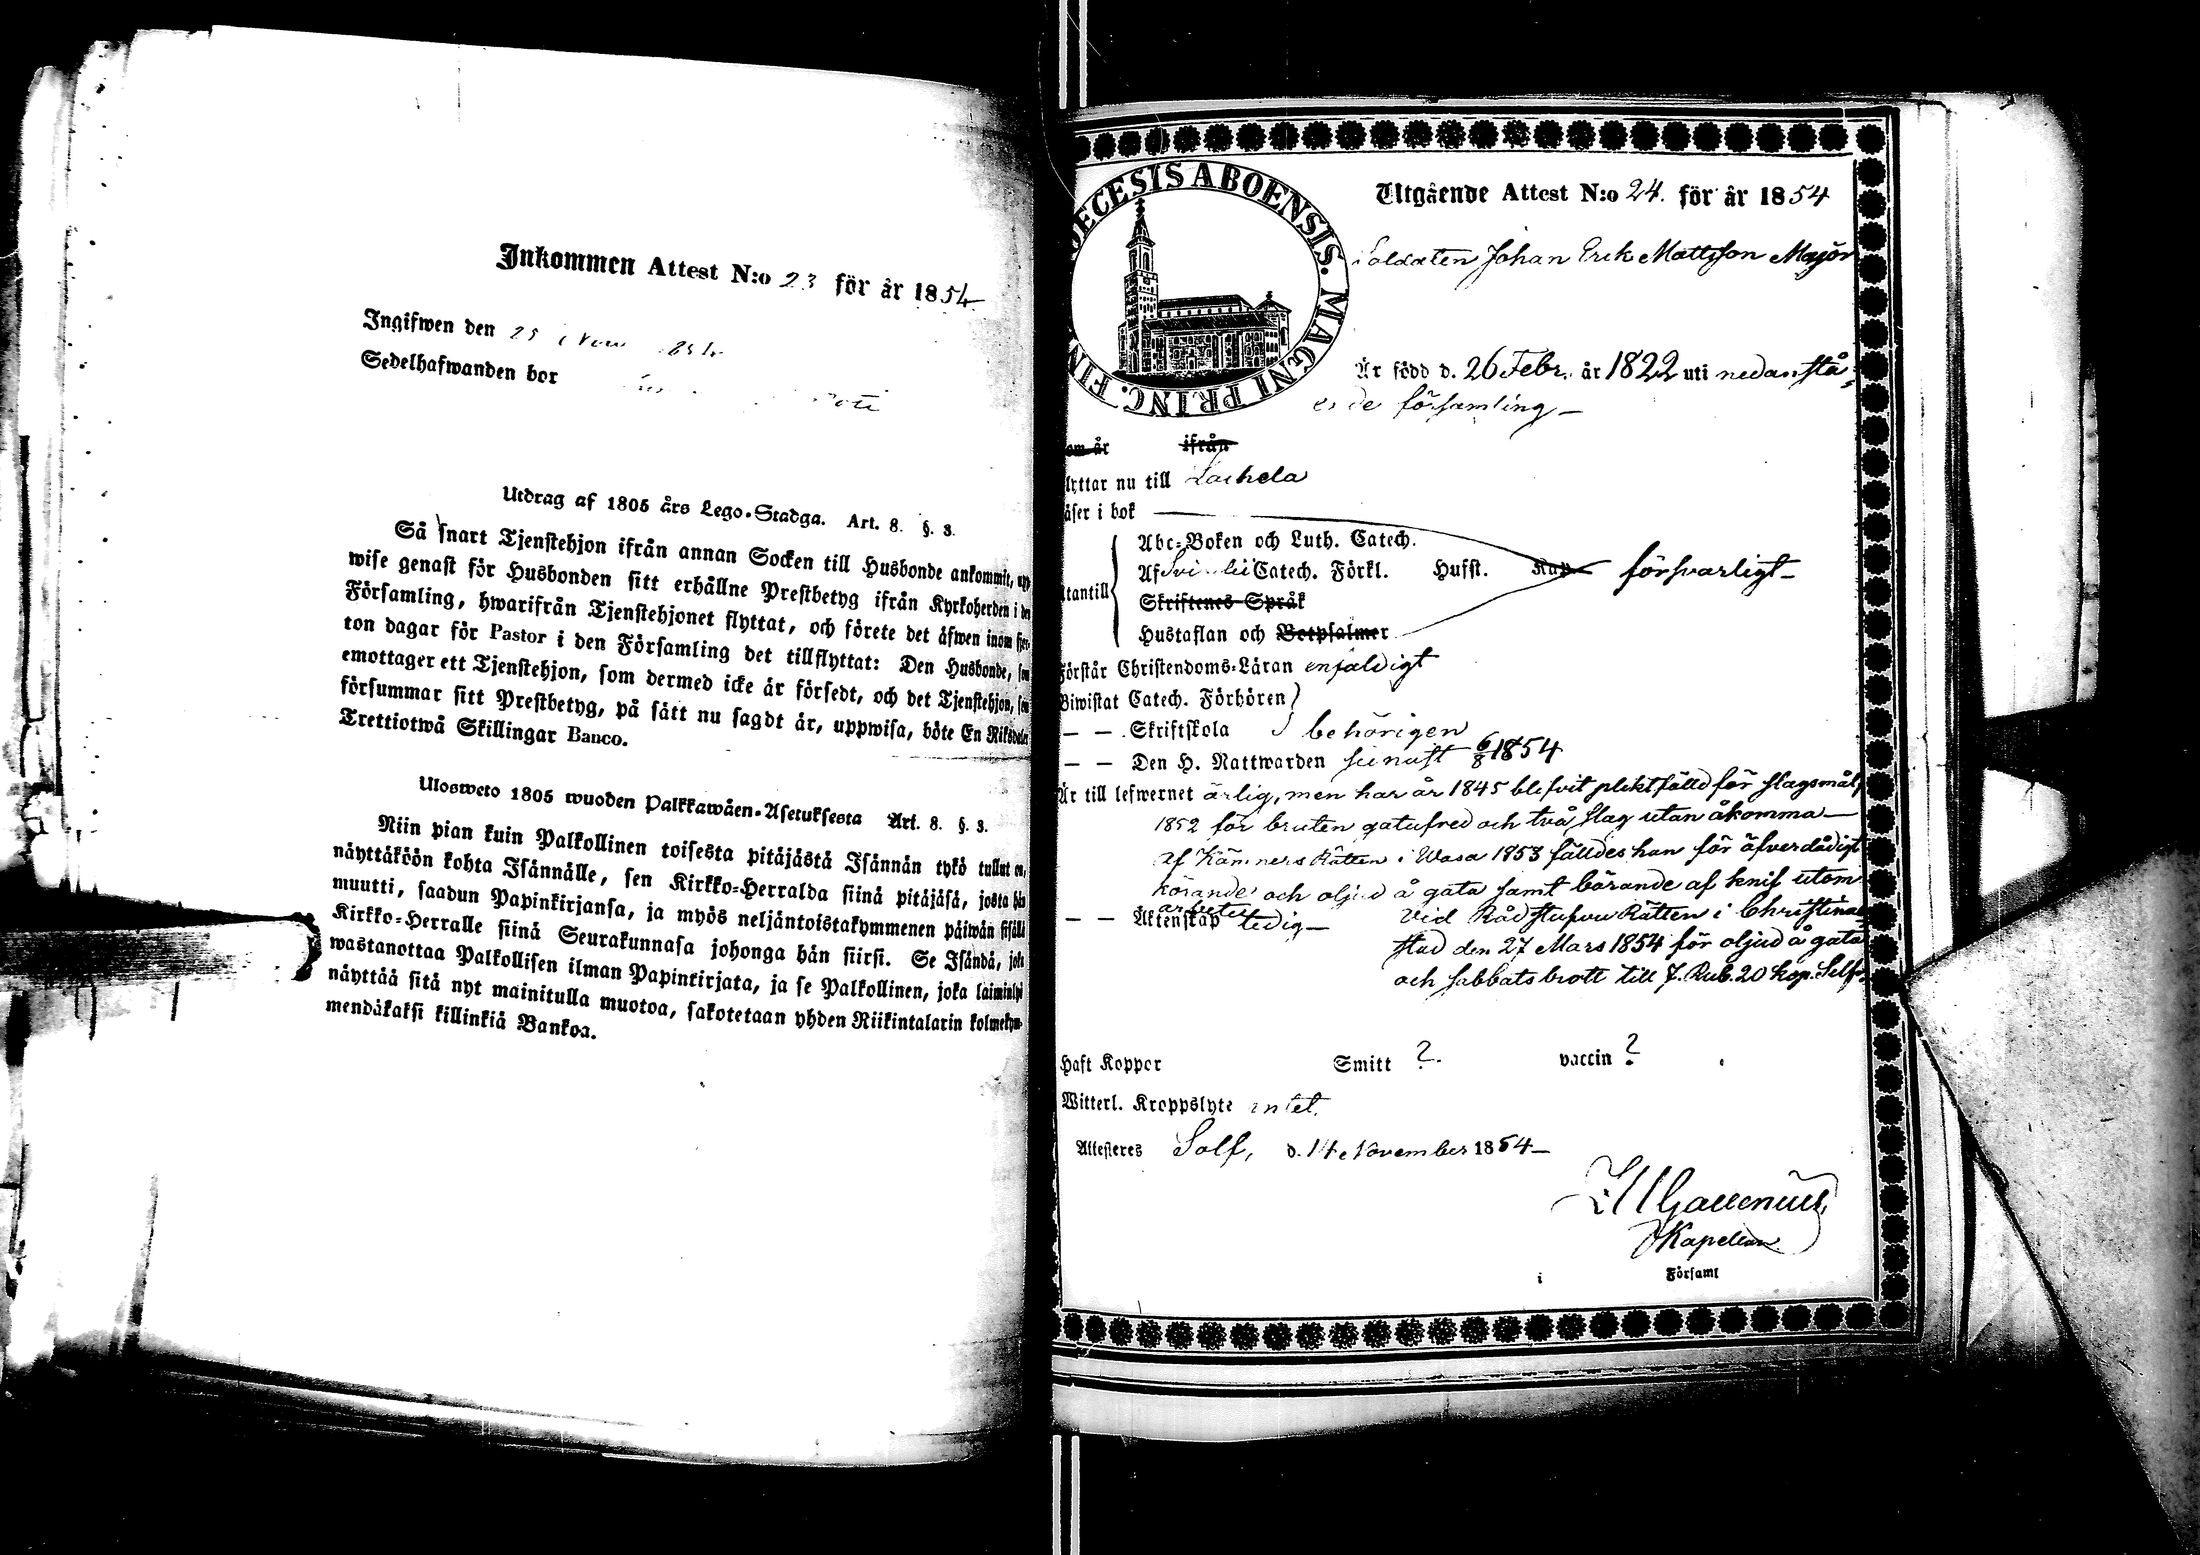 Inkommen Attest N:o 23 för år 1854
Ingifwen den 25
Sedelhafwanden bor
Utdrag af 1805 års Lego-Stadga. Art. 8. §. 3.
Så snart Tjenstehjon ifrån annan Socken till Husbonde ankommit, upp-
wise genast för Husbonden sitt erhållne Prestbetyg ifrån Kyrkoherden i den
Församling, hwarifrån Tjenstehjonet flyttat, och förete det äfwen inom fjor-
ton dagar för Pastor i den Församling det tillflyttat: Den Husbonde, som
emottager ett Tjenstehjon, som dermed icke är försedt, och det Tjenstehjon, som
försummar sitt Prestbetyg, på sätt nu sagdt är, uppwisa, böte En Riksdaler
Trettiotwå Skillingar Banco.
Ulosweto 1805 wuoden Palkkawäen-Asetuksesta Art. 8. §. 3.
Niin pian kuin Palkollinen toisesta pitäjästä Isännän tykö tullut on,
näyttäköön kohta Isännälle, sen Kirkko-Herralda siinä pitäjäsä, josta hän
muutti, saadun Papinkirjansa, ja myös neljäntoistakymmenen päiwän sisällä
Kirkko-Herralle siinä Seurakunnasa johonga hän siirsi. Se Isändä, joka
wastanottaa Palkollisen ilman Papinkirjata, ja se Palkollinen, joka laiminlyö
näyttää sitä nyt mainitulla muotoa, sakotetaan yhden Riikintalarin kolmekym-
mendäkaksi killinkiä Bankoa.
DECESIS ABOENSIS. MAGNI PRINC. FIN
Utgående Attest N:o 24. för år 1854
Soldaten Johan Erik Mattsson Major
Är född d. 26 Febr. år 1822 uti nedanstå-
ende församling
om år ifrån
lyttar nu till Laihela
äser i bok
Abc-Boken och Luth. Catech.
Af Svibelii Catech. Förkl. Husst. försvarligt
tantill
Skriftenes Språk
Hustaflan och Botpsalmer
Förstår Christendoms-Läran enfaldigt
Biwistat Catech. Förhören
— — Skriftskola behörigen
— — Den H. Nattwarden senast 6/8 1854
Är till lefwernet ärlig, men har år 1845 blifvit pliktfälld för slagsmål,
1852 för bruten gatufred och två slag utan åkomma
af Kämners Rätten i Wasa 1853 fälldes han för öfverdådigt
körande och oljud å gata samt bärande af knif utom
arbete
— — Äktenskap ledig Vid Rådstufvu Rätten i Christina
stad den 27 Mars 1854 för oljud å gata
och sabbatsbrott till 7. Rub. 20 kop. Silf.
Haft Koppor Smitt ? vaccin ?
Witterl. Kroppslyte intet.
Attesteres Solf, d. 14 November 1854
Kapellan
i Församl